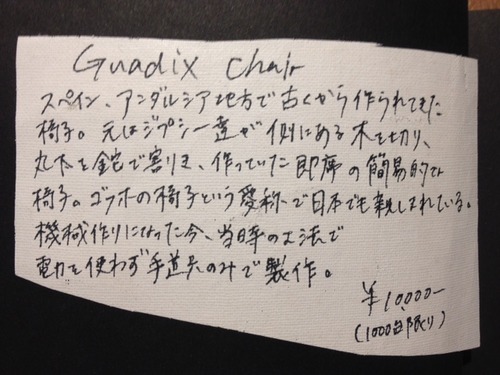 Guadix chair
スペイン、アンダルシア地方で古くから作られてきた
椅子。元はジプシー達が側にある木を切り、
丸太を鉈で割りき、作っていた即席の簡易的な
椅子。ゴッホの椅子という愛称で日本でも親しまれている。
機械作りになった今、当時の工法で
電力を使わず手道具のみで製作。
¥10,000-
(1000台限り)